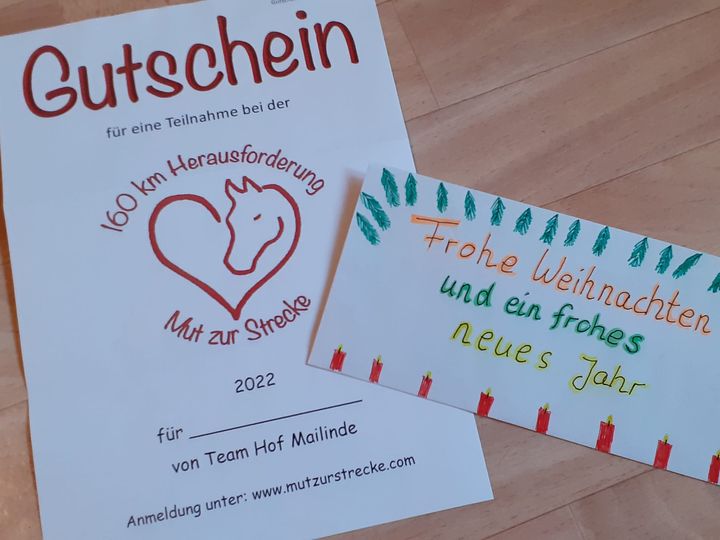 Gutschein
für eine Teilnahme bei der
160 km Herausforderung
Mut zur Strecke
2022
für
von Team Hof Mailinde
Anmeldung unter: www.mutzurstrecke.com
Frohe Weihnachten
und ein frohes
neues Jahr